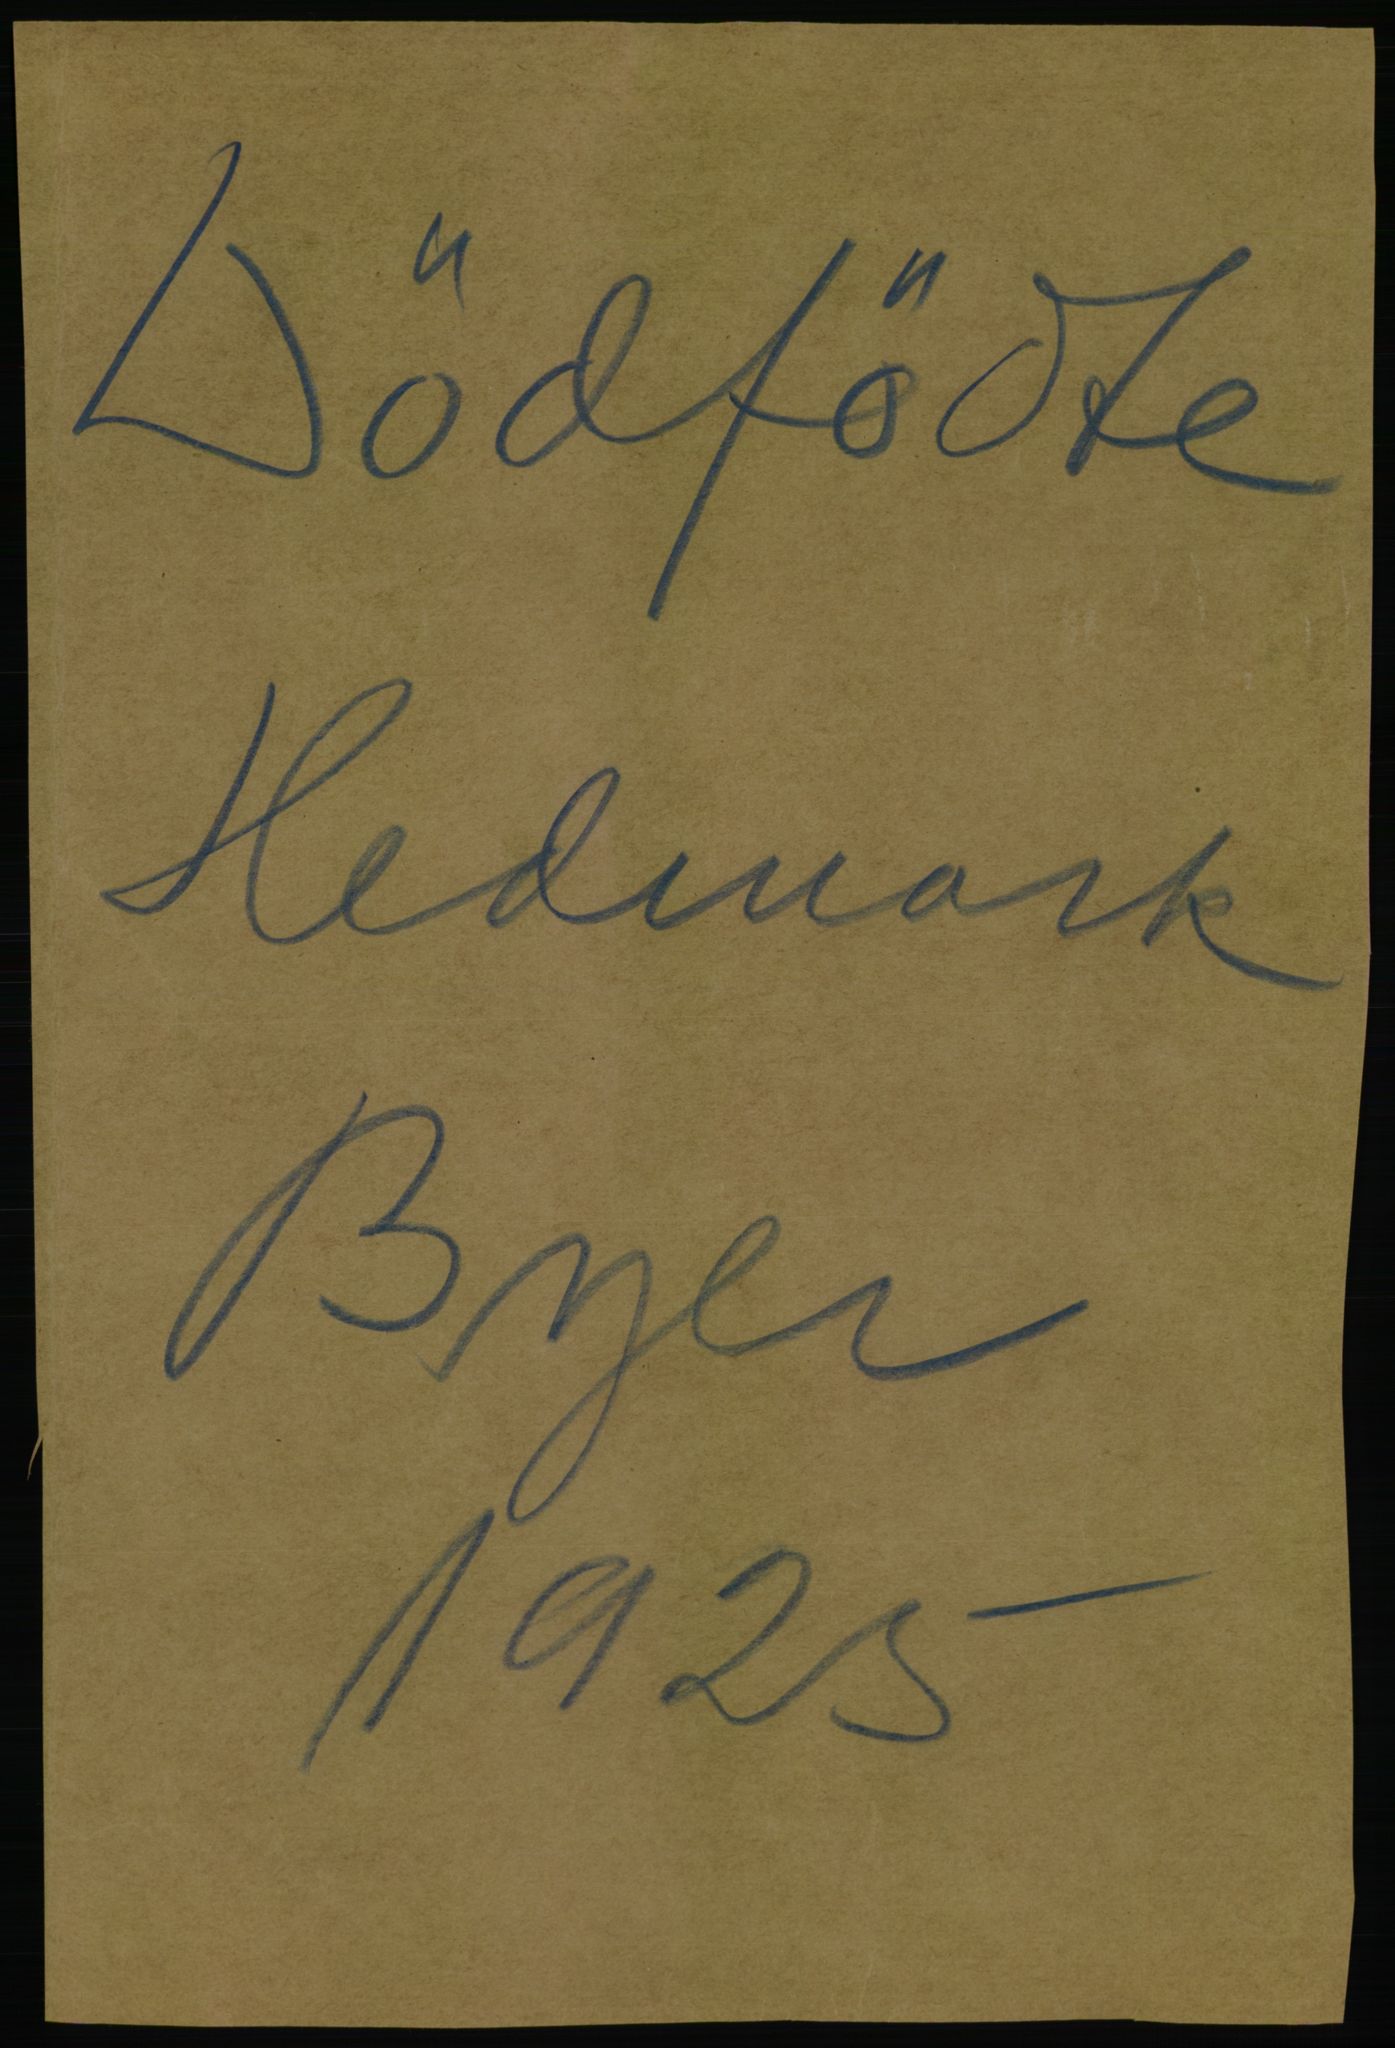 Dödfödte
Hedmark
Byer
1925